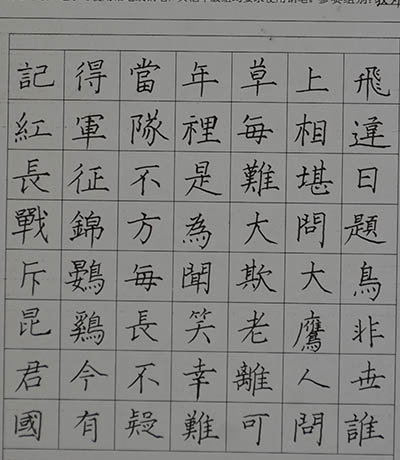 記得當年草上飛
紅軍隊裡每相違
長征不是難堪日
戰錦方為大問題
斥鷃每聞欺大鳥
昆鷄長笑老鷹非
君今不幸離人世
國有疑難可問誰